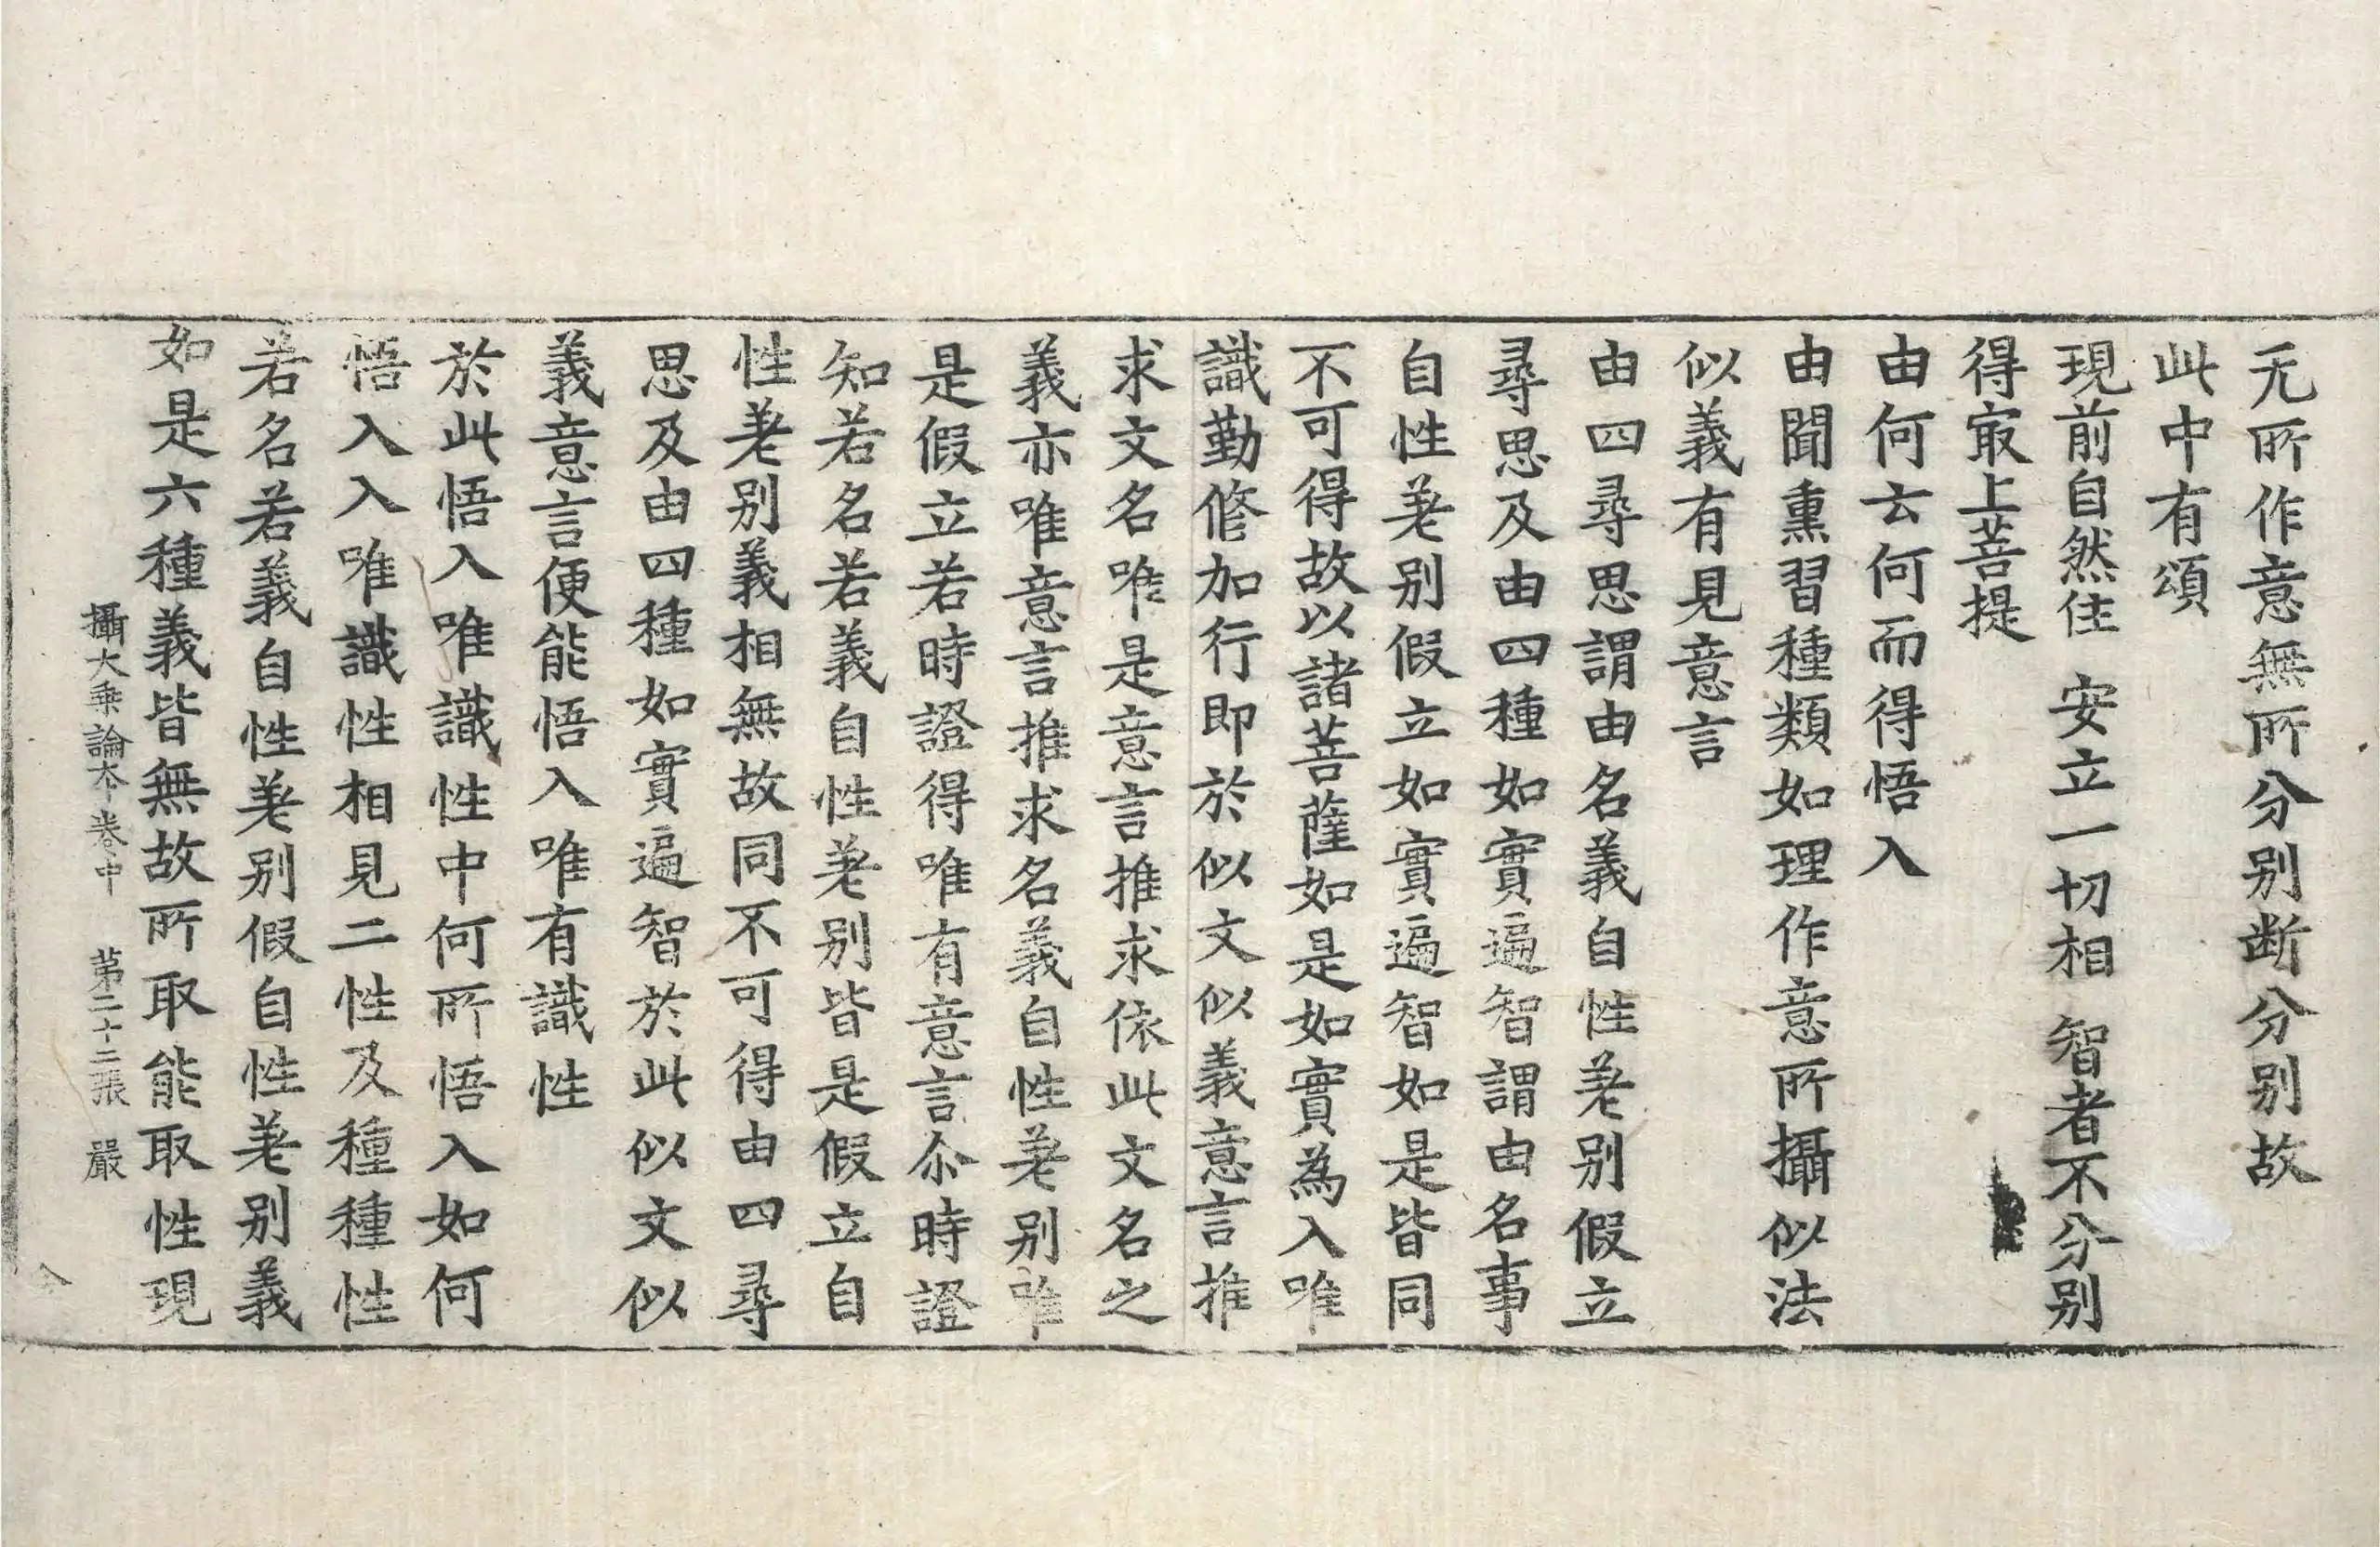 无所作意無所分別断分別故
此中有頌
現前自然住　安立一切相　智者不分別
得㝡上菩提
由何云何而得悟入
由聞熏習種類如理作意所攝似法
似義有見意言
由四尋思謂由名義自性差別假立
尋思及由四種如實遍智謂由名事
自性差別假立如實遍智如是皆同
不可得故以諸菩薩如是如實為入唯
識勤修加行即於似文似義意言推
求文名唯是意言推求依此文名之
義亦唯意言推求名義自性差別唯
是假立若時證得唯有意言尒時證
知若名若義自性差別皆是假立自
性差別義相無故同不可得由四尋
思及由四種如實遍智於此似文似
義意言便能悟入唯有識性
於此悟入唯識性中何所悟入如何
悟入入唯識性相見二性及種種性
若名若義自性差別假自性差別義
如是六種義皆無故所取能取性現
攝大乗論夲卷中　苐二十二張　嚴